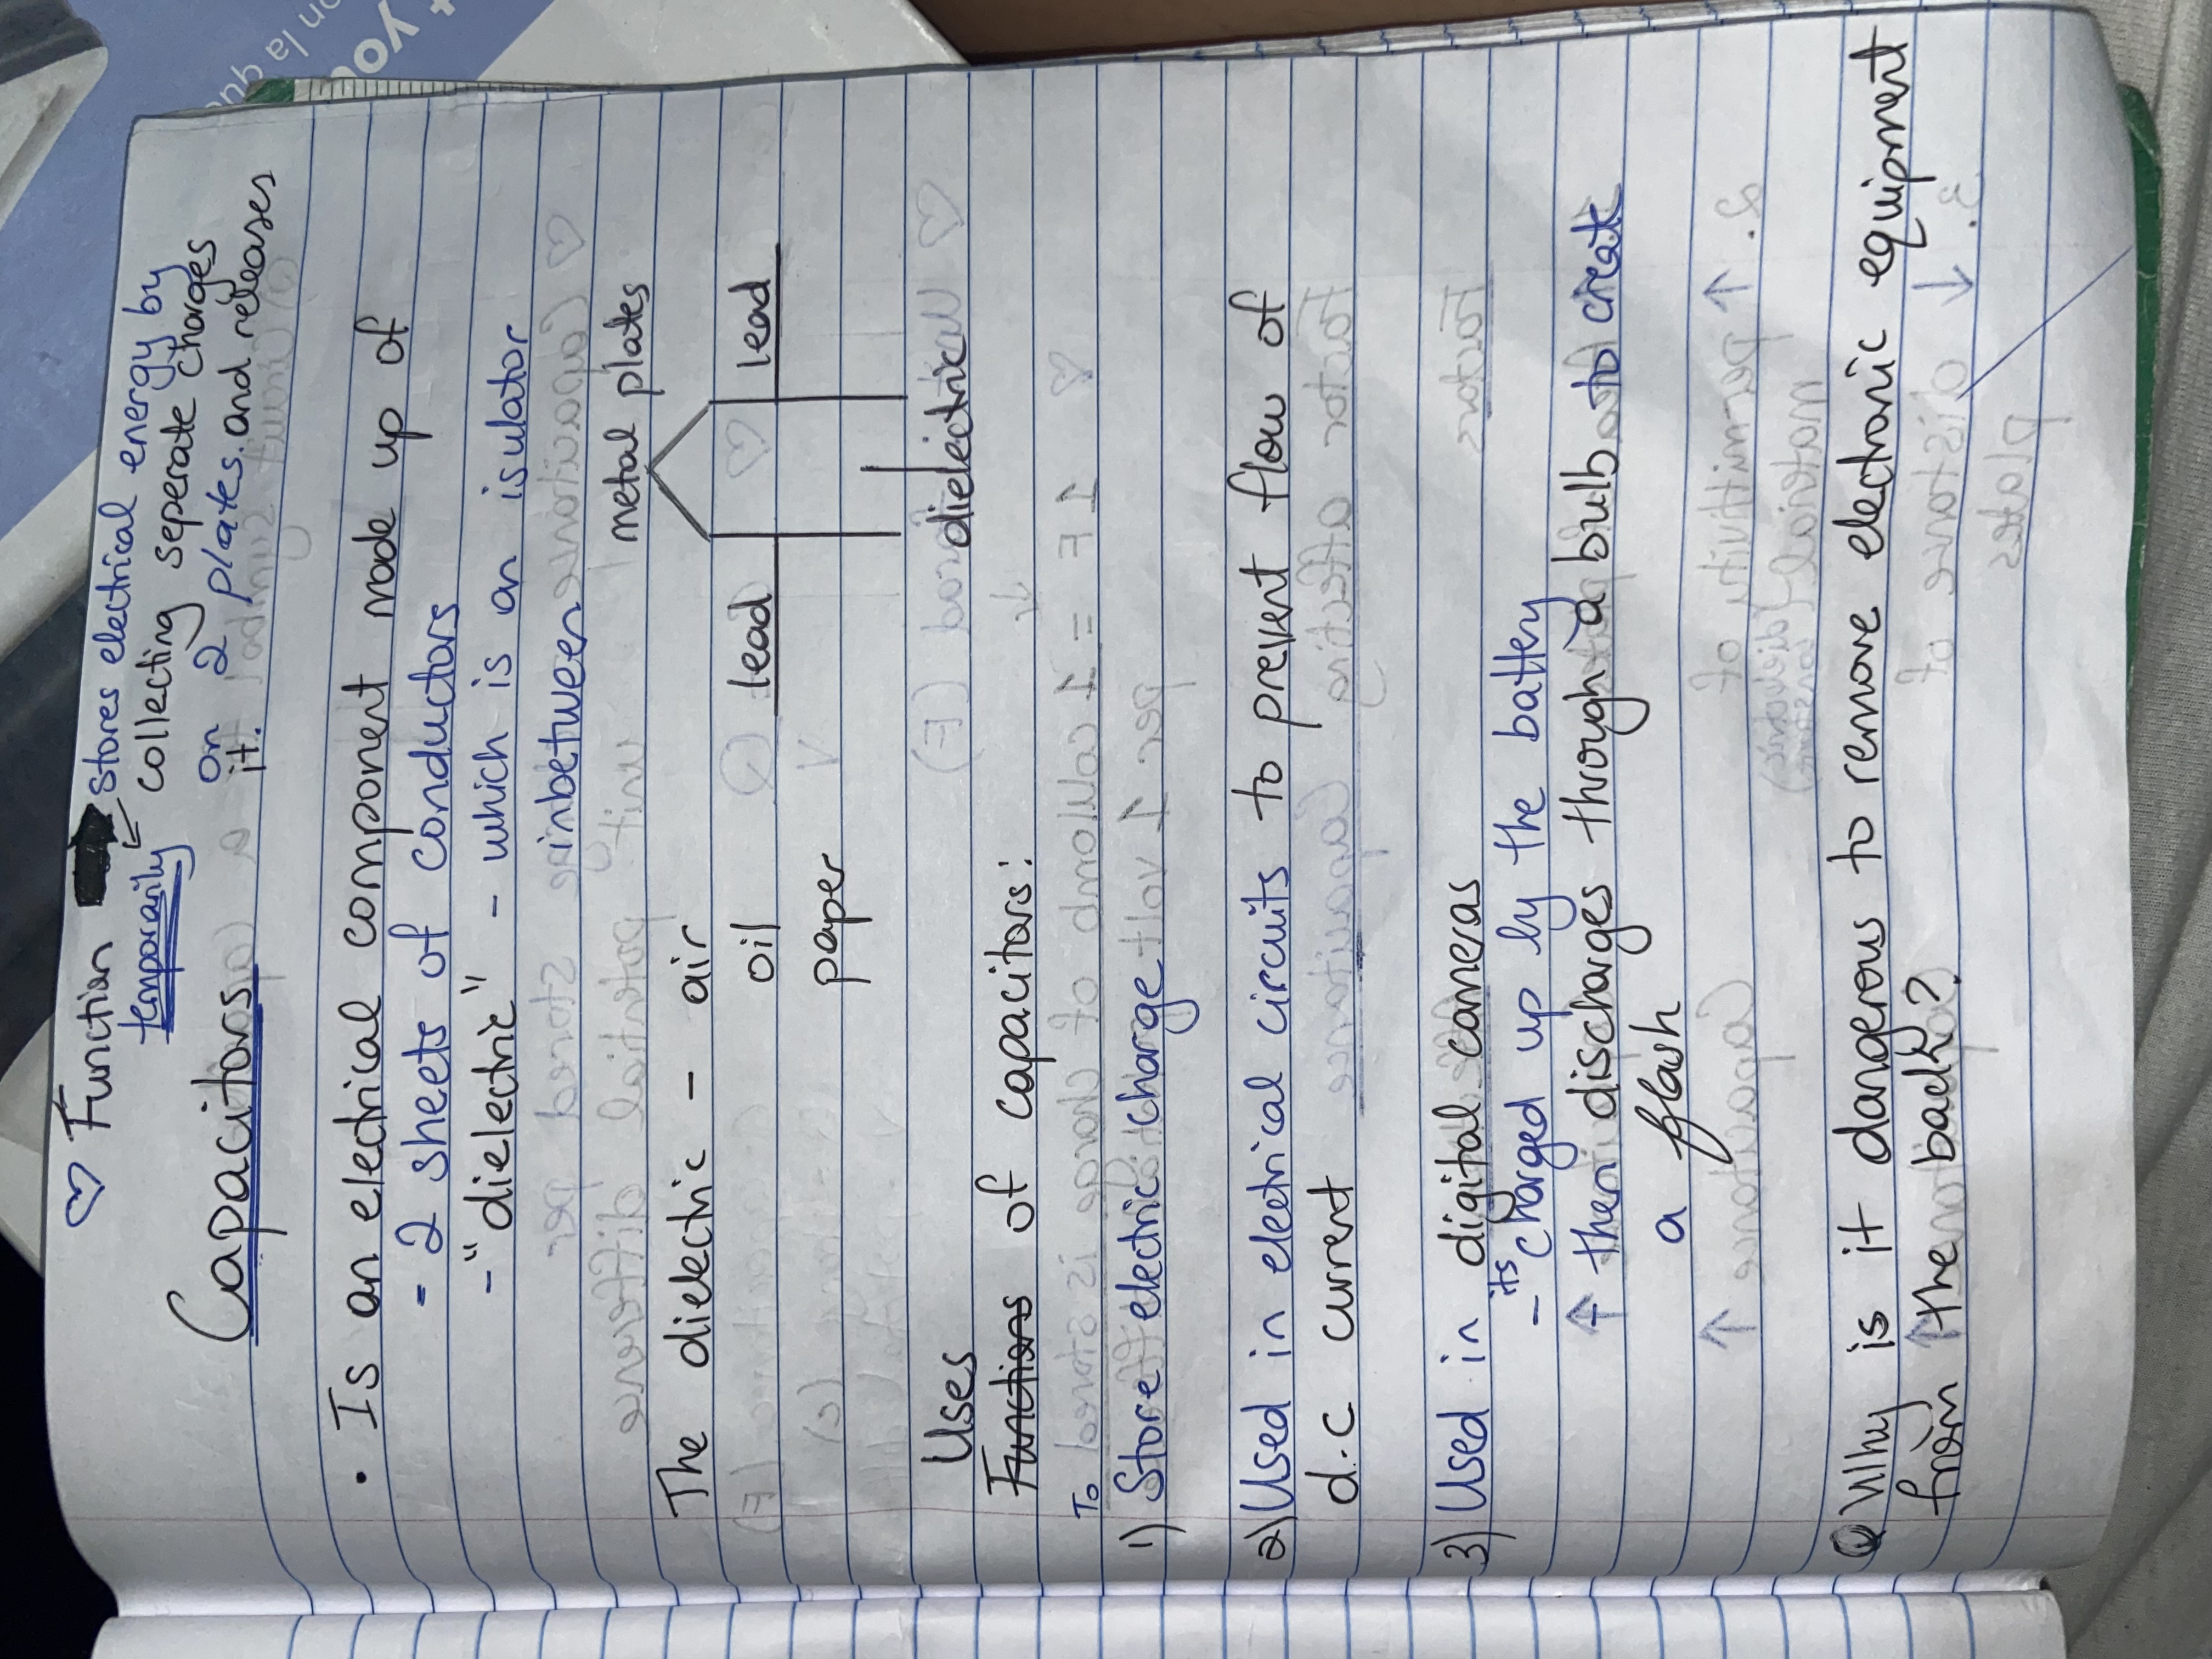 ♡ Function stores electrical energy by
temporarily collecting seperate charges
on 2 plates. and releases
it.
Capacitors
• Is an electrical component made up of
- 2 sheets of conductors
- "dielectric" - which is an isulator
inbetween
metal plates
The dielectric - air
lead lead
oil
paper
dielectric
Uses
Functions of capacitors:
To
1) Store electric charge
2) Used in electrical circuits to prevent flow of
d.c current
3) Used in digital cameras
- its charged up by the battery
- then discharges through a bulb to create
a flash
Why is it dangerous to remove electronic equipment
from the back?